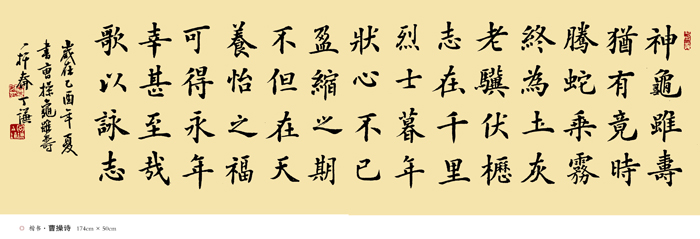 神龜雖壽
猶有竟時
騰蛇乘霧
終為土灰
老驥伏櫪
志在千里
烈士暮年
狀心不已
盈縮之期
不但在天
養怡之福
可得永年
幸甚至哉
歌以詠志
歲在乙酉年夏
書曹操龜雖壽
楷书·曹操诗 174cm × 50cm